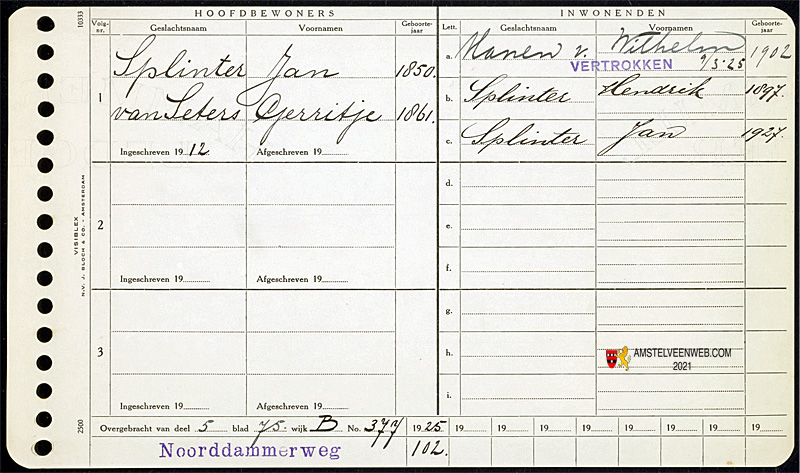 HOOFDBEWONERS
INWONENDEN
Volg-nr. Geslachtsnaam Voornamen Geboorte-jaar
Lett. Geslachtsnaam Voornamen Geboorte-jaar
1 Splinter Jan 1850.
van Seters Gerritje 1861.
Ingeschreven 19 12. Afgeschreven 19
2
Ingeschreven 19 Afgeschreven 19
3
Ingeschreven 19 Afgeschreven 19
a. Manen v. Wilhelm 1902
VERTROKKEN 9/3'25
b. Splinter Hendrik 1897.
c. Splinter Jan 1927.
d.
e.
f.
g.
h.
i.
AMSTELVEENWEB.COM
2021
Overgebracht van deel 5 blad 75. wijk B No. 377 1925. 19 19 19 19 19 19 19 19
Noorddammerweg 102.
10333
VISIBLEX
N.V. J. BLOCH & CO. - AMSTERDAM
2500